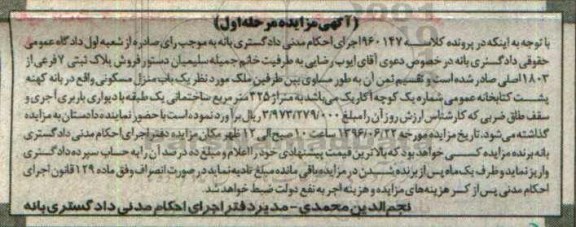 (آگهی مزایده مرحله اول)
با توجه به اینکه در پرونده کلاسه ۹۶۰۱۴۷ اجرای احکام مدنی دادگستری بانه به موجب رای صادره از شعبه اول دادگاه عمومی
حقوقی دادگستری بانه در خصوص دعوی آقای ایوب رضایی به طرفیت خانم جمیله سلیمیان دستور فروش پلاک ثبتی ۷ فرعی از
۱۸۰۳ اصلی صادر شده است و تقسیم ثمن آن به طور مساوی بین طرفین ملک مورد نظر یک باب منزل مسکونی واقع در بانه کهنه
پشت کتابخانه عمومی شماره یک کوچه آکار یک می باشد به متراژ ۳۲۵ متر مربع ساختمانی یک طبقه با دیواری باربری آجری و
سقف طاق ضربی که کارشناس ارزش روز آن را مبلغ ۳/۹۷۳/۲۷۹/۰۰۰ ریال برآورد نموده است با حضور نماینده دادستان به مزایده
گذاشته می شود. تاریخ مزایده مورخه ۱۳۹۶/۰۶/۲۲ ساعت ۱۰ صبح الی ۱۲ ظهر مکان مزایده دفتر اجرای احکام مدنی دادگستری
بانه برنده مزایده کسی خواهد بود که بالاترین قیمت پیشنهادی خود را اعلام و مبلغ ده درصد آن را به حساب سپرده دادگستری
واریز نماید و ظرف یک ماه پس از برنده شدن در مزایده باقی مانده مبلغ تادیه نماید در صورت انصراف وفق ماده ۱۲۹ قانون اجرای
احکام مدنی پس از کسر هزینه های مزایده و هزینه اجر به نفع دولت ضبط خواهد شد.
نجم الدین محمدی - مدیر دفتر اجرای احکام مدنی دادگستری بانه